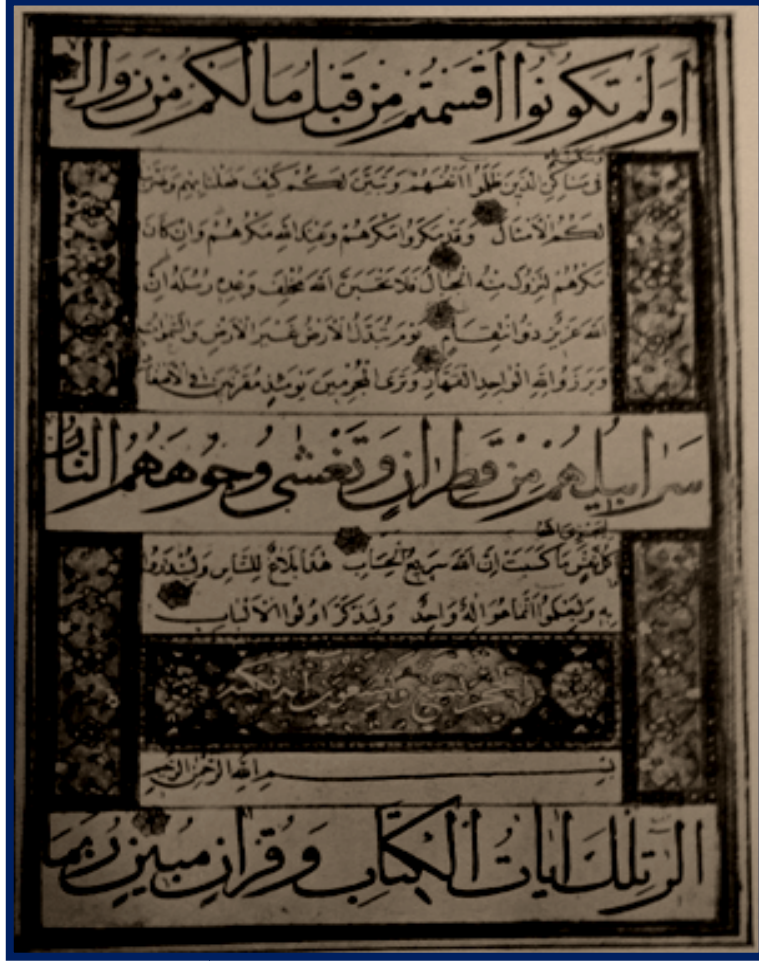 اَوَلَمْ تَكُونُوا اَقْسَمْتُمْ مِنْ قَبْلُ مَا لَكُمْ مِنْ زَوَالٍ
وَسَكَنْتُمْ
فِى مَسَاكِنِ الَّذِينَ ظَلَمُوا اَنْفُسَهُمْ وَتَبَيَّنَ لَكُمْ كَيْفَ فَعَلْنَا بِهِمْ وَضَرَبْنَا
لَكُمُ الْاَمْثَالَ وَقَدْ مَكَرُوا مَكْرَهُمْ وَعِنْدَ اللهِ مَكْرُهُمْ وَاِنْ كَانَ
مَكْرُهُمْ لِتَزُولَ مِنْهُ الْجِبَالُ فَلَا تَحْسَبَنَّ اللهَ مُخْلِفَ وَعْدِهِ رُسُلَهُ اِنَّ
اللهَ عَزِيزٌ ذُو انْتِقَامٍ يَوْمَ تُبَدَّلُ الْاَرْضُ غَيْرَ الْاَرْضِ وَالسَّمٰوَاتُ
وَبَرَزُوا لِلّٰهِ الْوَاحِدِ الْقَهَّارِ وَتَرَى الْمُجْرِمِينَ يَوْمَئِذٍ مُقَرَّنِينَ فِى الْاَصْفَادِ
سَرَابِيلُهُمْ مِنْ قَطِرَانٍ وَتَغْشٰى وُجُوهَهُمُ النَّارُ
لِيَجْزِىَ اللهُ
كُلَّ نَفْسٍ مَا كَسَبَتْ اِنَّ اللهَ سَرِيعُ الْحِسَابِ هٰذَا بَلَاغٌ لِلنَّاسِ وَلِيُنْذَرُوا
بِهِ وَلِيَعْلَمُوا اَنَّمَا هُوَ اِلٰهٌ وَاحِدٌ وَلِيَذَّكَّرَ اُولُوا الْاَلْبَابِ
بِسْمِ اللهِ الرَّحْمٰنِ الرَّحِيمِ
الٓرٰ تِلْكَ اٰيَاتُ الْكِتَابِ وَقُرْاٰنٍ مُبِينٍ رُبَمَا